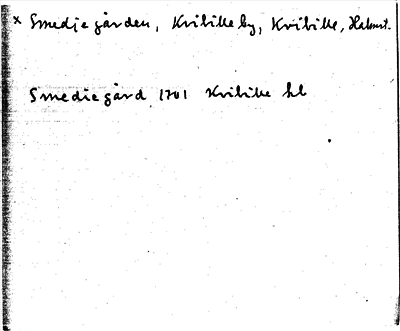 x Smedjegården, Kvibille by, Kvibille, Halmst.
Smediegård 1701 Kvibille kl